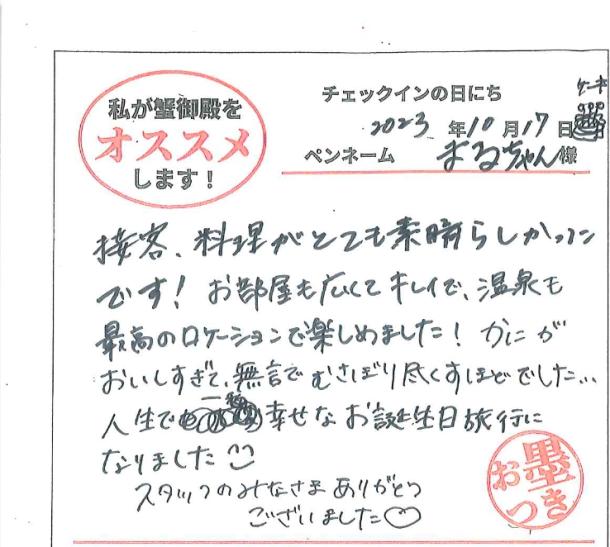 私が蟹御殿を
オススメ
します！
チェックインの日にち
ケーキ
2023年10月17日
ペンネーム まるちゃん様
接客、料理がとても素晴らしかった
です！お部屋も広くてキレイで、温泉も
最高のロケーションで楽しめました！かにが
おいしすぎて、無言でむさぼり尽くすほどでした…
人生で一番幸せなお誕生日旅行に
なりました
スタッフのみなさまありがとう
ございました♡
お墨つき